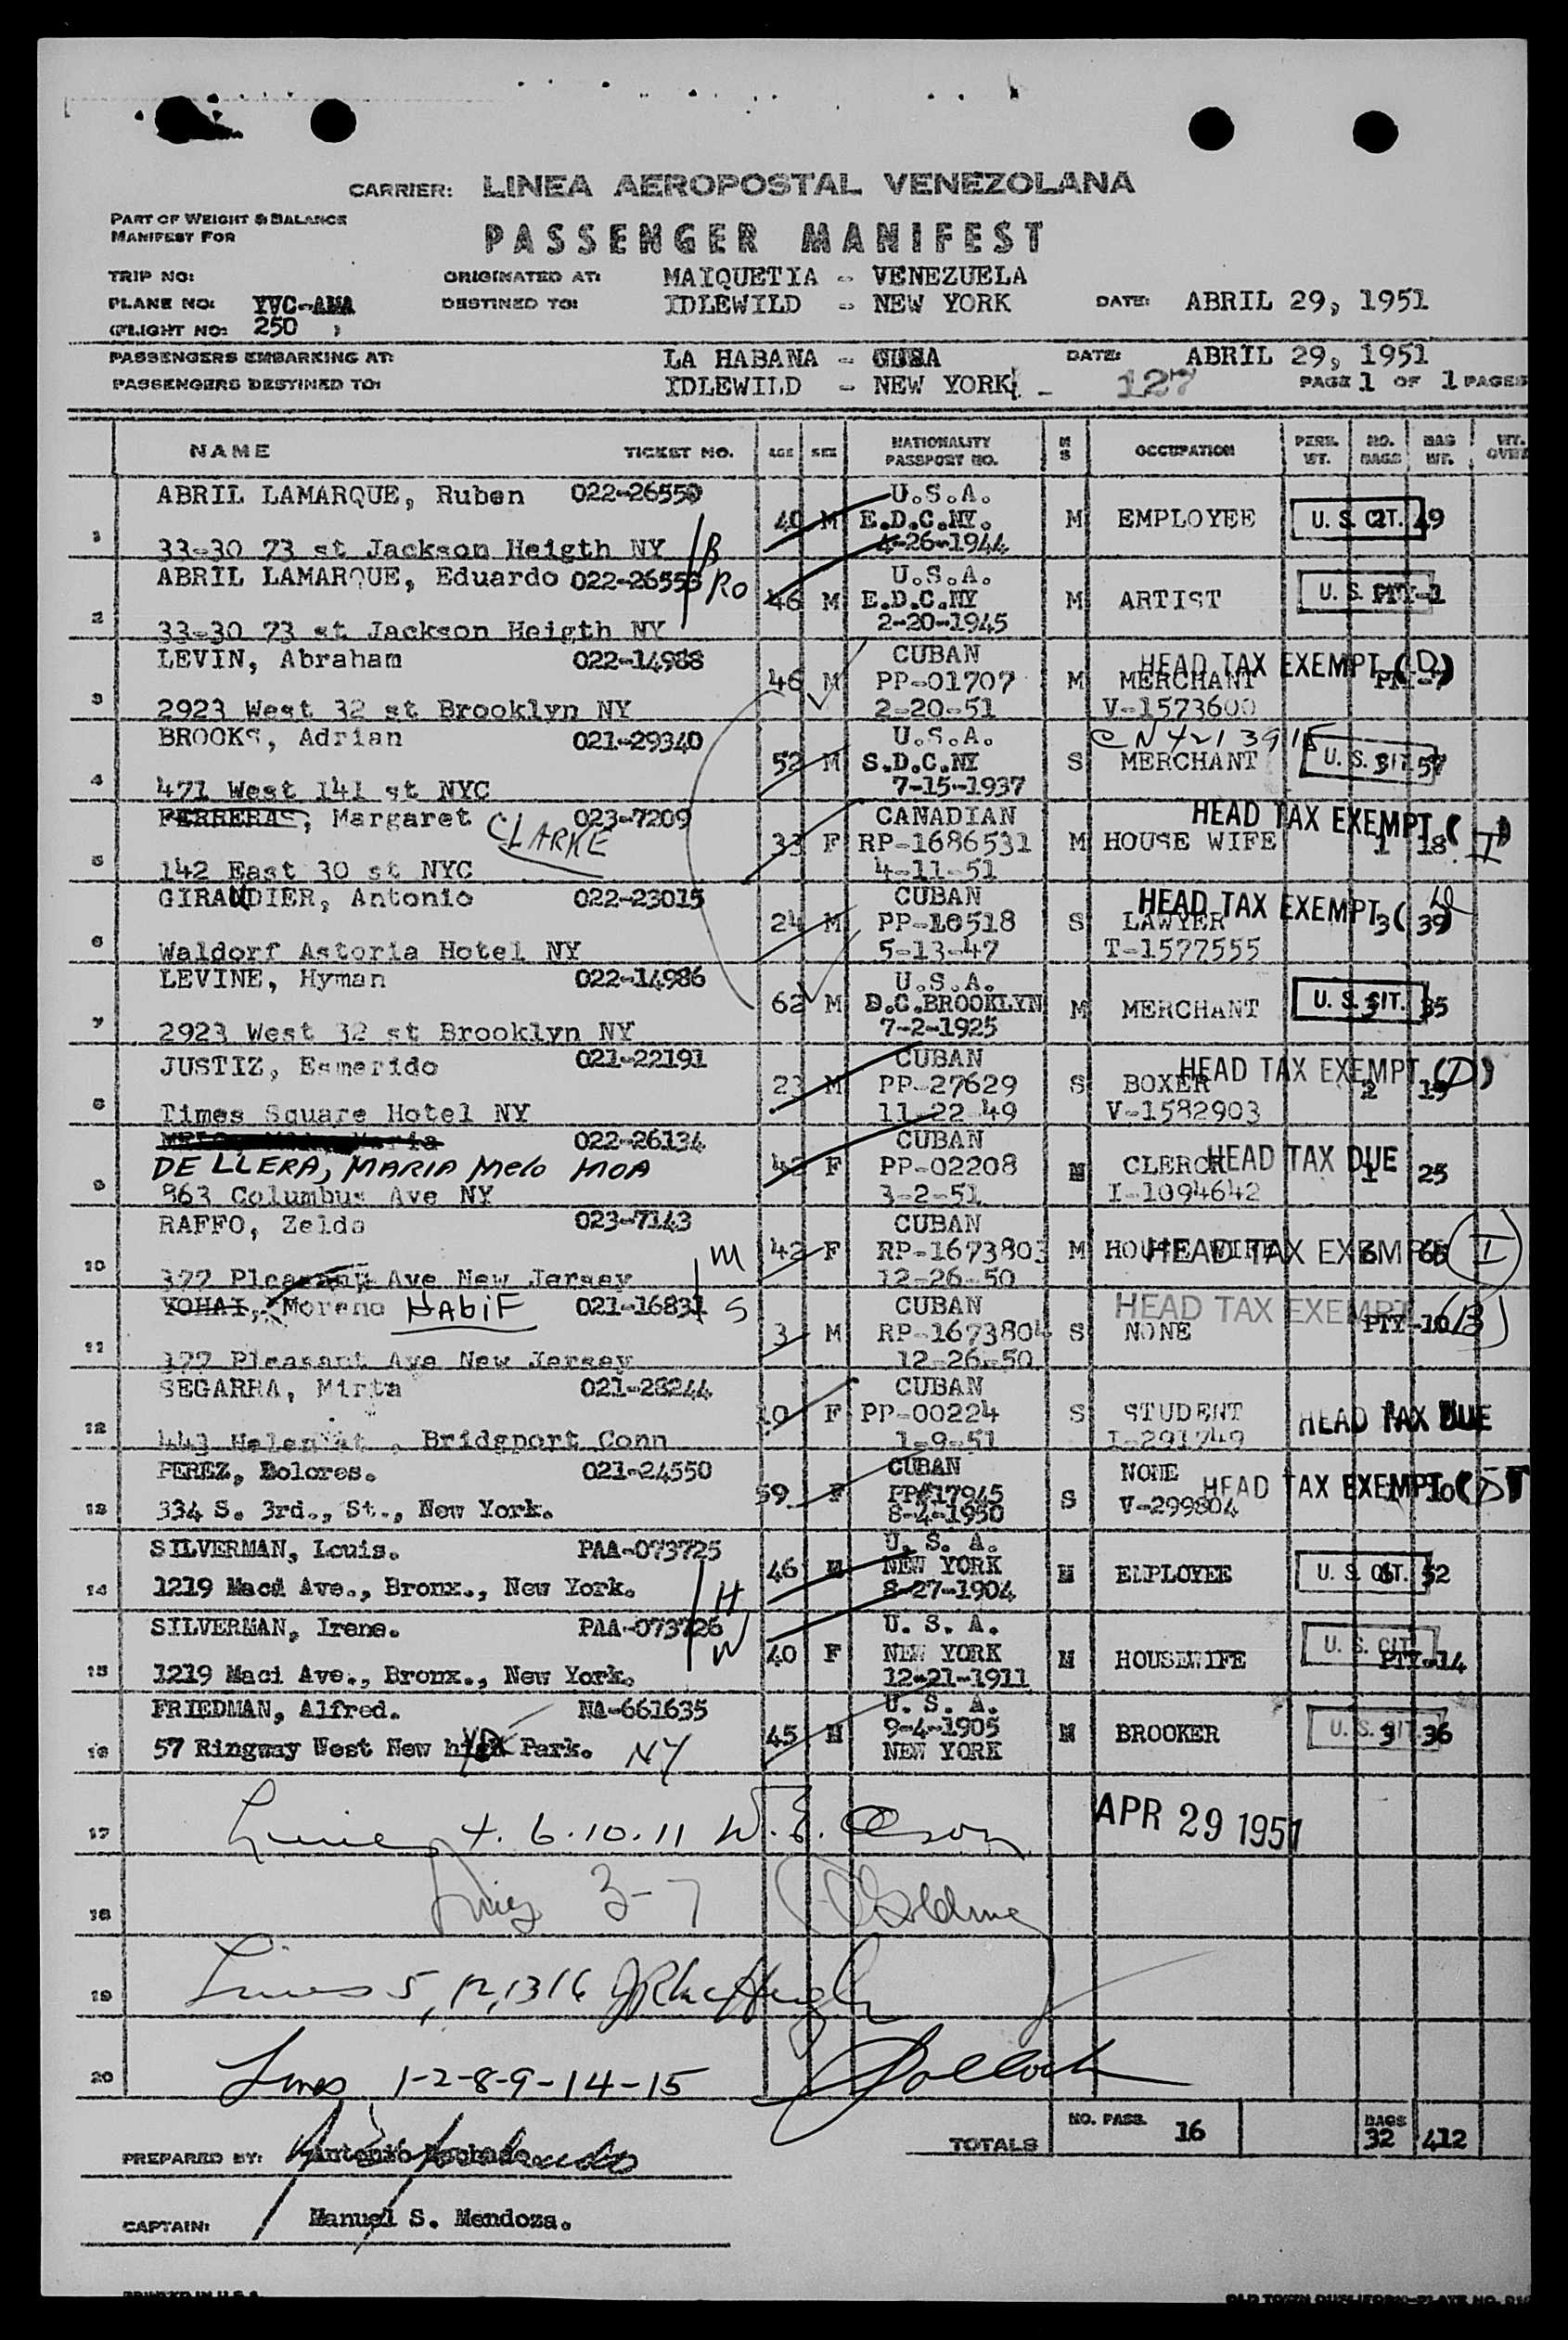 CARRIER: LINEA AEROPOSTAL VENEZOLANA
PART OF WEIGHT & BALANCE
MANIFEST FOR
PASSENGER MANIFEST
TRIP NO: ORIGINATED AT: MAIQUETIA - VENEZUELA
PLANE NO: YVC-AMA DESTINED TO: IDLEWILD - NEW YORK DATE: ABRIL 29, 1951
(FLIGHT NO: 250 )
PASSENGERS EMBARKING AT: LA HABANA - CUBA DATE: ABRIL 29, 1951
PASSENGERS DESTINED TO: IDLEWILD - NEW YORK. - 127 PAGE 1 OF 1 PAGES
NAME TICKET NO. AGE SEX NATIONALITY PASSPORT NO. M S OCCUPATION PERS. WT. NO. BAGS BAG WT. WT.
ABRIL LAMARQUE, Ruben 022-26550 U.S.A.
1 40 M E.D.C.NY. M EMPLOYEE U. S. CIT. 2 49
33-30 73 st Jackson Heigth NY B 4-26-1944
ABRIL LAMARQUE, Eduardo 022-26553 Ro U.S.A.
2 46 M E.D.C.NY M ARTIST U. S. CIT. PTY-1
33-30 73 st Jackson Heigth NY 2-20-1945
LEVIN, Abraham 022-14988 CUBAN HEAD TAX EXEMPT (D)
3 46 M PP-01707 M MERCHANT PTY-7
2923 West 32 st Brooklyn NY 2-20-51 V-1573600
BROOKS, Adrian 021-29340 U.S.A. CN 4213915
4 52 M S.D.C.NY S MERCHANT U. S. CIT. 3 57
471 West 141 st NYC 7-15-1937
FERRERAS, Margaret CLARKE 023-7209 CANADIAN HEAD TAX EXEMPT (I)
5 33 F RP-1686531 M HOUSE WIFE 1 18
142 East 30 st NYC 4-11-51
GIRAUDIER, Antonio 022-23015 CUBAN HEAD TAX EXEMPT
6 24 M PP-10518 S LAWYER 3 39
Waldorf Astoria Hotel NY 5-13-47 T-1577555
LEVINE, Hyman 022-14986 U.S.A.
7 62 M D.C.BROOKLYN M MERCHANT U. S. CIT. 35
2923 West 32 st Brooklyn NY 7-2-1925
JUSTIZ, Esmerido 021-22191 CUBAN HEAD TAX EXEMPT (D)
8 23 M PP-27629 S BOXER 2 19
Times Square Hotel NY 11-22-49 V-1582903
022-26134 CUBAN
DE LLERA, MARIA Melo MOA 42 F PP-02208 M CLERCK HEAD TAX DUE 1 25
9 863 Columbus Ave NY 3-2-51 I-1094642
RAFFO, Zelda 023-7143 CUBAN
10 M 42 F RP-1673803 M HOUSE WIFE HEAD TAX EXEMPT (I) 6 66
377 Pleasant Ave New Jersey 12-26-50
YOHAI, Moreno HABIF 021-16831 S CUBAN HEAD TAX EXEMPT (B)
11 3 M RP-1673804 S NONE PTY-10
377 Pleasant Ave New Jersey 12-26-50
SEGARRA, Mirta 021-28244 CUBAN
12 10 F PP-00224 S STUDENT HEAD TAX DUE
443 Helen st , Bridgport Conn 1-9-51 I-291749
PEREZ, Dolores. 021-24550 CUBAN NONE HEAD TAX EXEMPT (D)
13 334 S. 3rd., St., New York. 59 F PP#17945 S V-299804 1 10
8-4-1950
SILVERMAN, Louis. PAA-073725 U. S. A.
14 1219 Maci Ave., Bronx., New York. H 46 M NEW YORK M EMPLOYEE U. S. CIT. 52
8-27-1904
SILVERMAN, Irene. PAA-073726 W U. S. A.
15 1219 Maci Ave., Bronx., New York. 40 F NEW YORK M HOUSEWIFE U. S. CIT. PTY-14
12-21-1911
FRIEDMAN, Alfred. NA-661635 U. S. A.
16 57 Ringway West New Park. NY 45 M 9-4-1905 M BROOKER U. S. CIT. 3 36
NEW YORK
17 Lines 4. 6. 10. 11 W. E. Olson APR 29 1951
18 Lines 3-7 Goldring
19 Lines 5, 12, 13 16
20 Lines 1-2-8-9-14-15 Pollock
TOTALS NO. PASS. 16 BAGS 32 412
PREPARED BY: Antonio Machado
CAPTAIN: Manuel S. Mendoza.
PRINTED IN U.S.A.